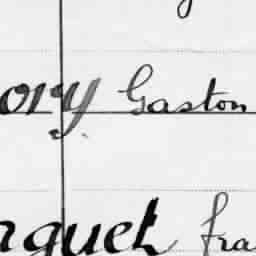 ory Gaston
rquet fra